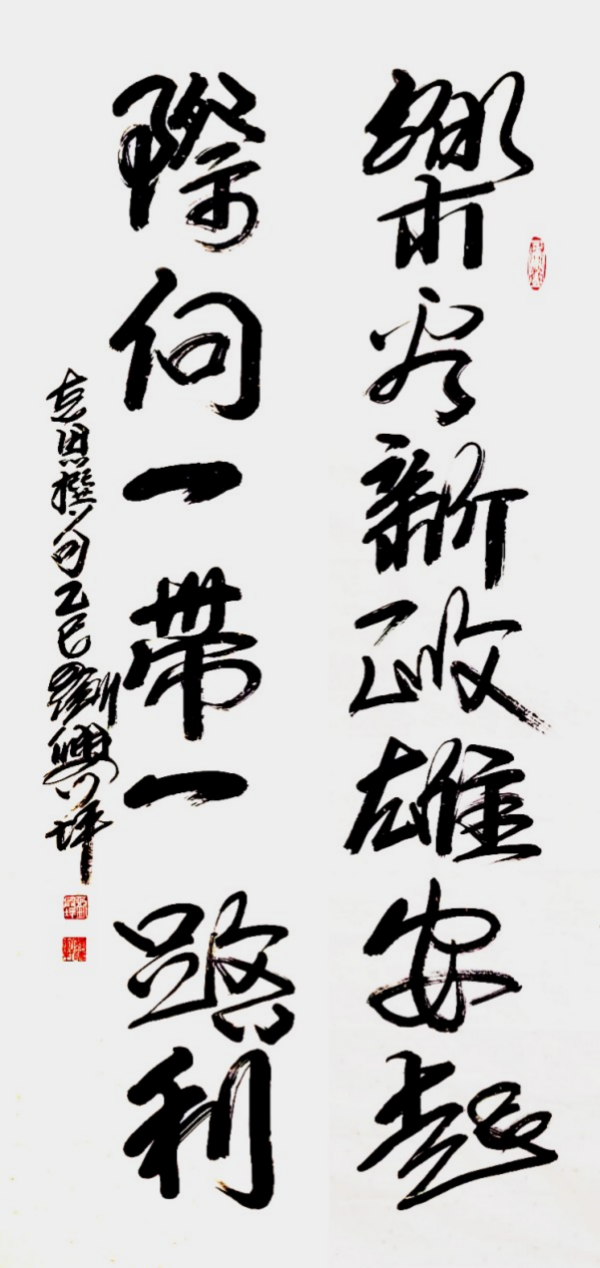 樂新政雄安起
際向一帶一路利
恩撰句乙巳劉興坪